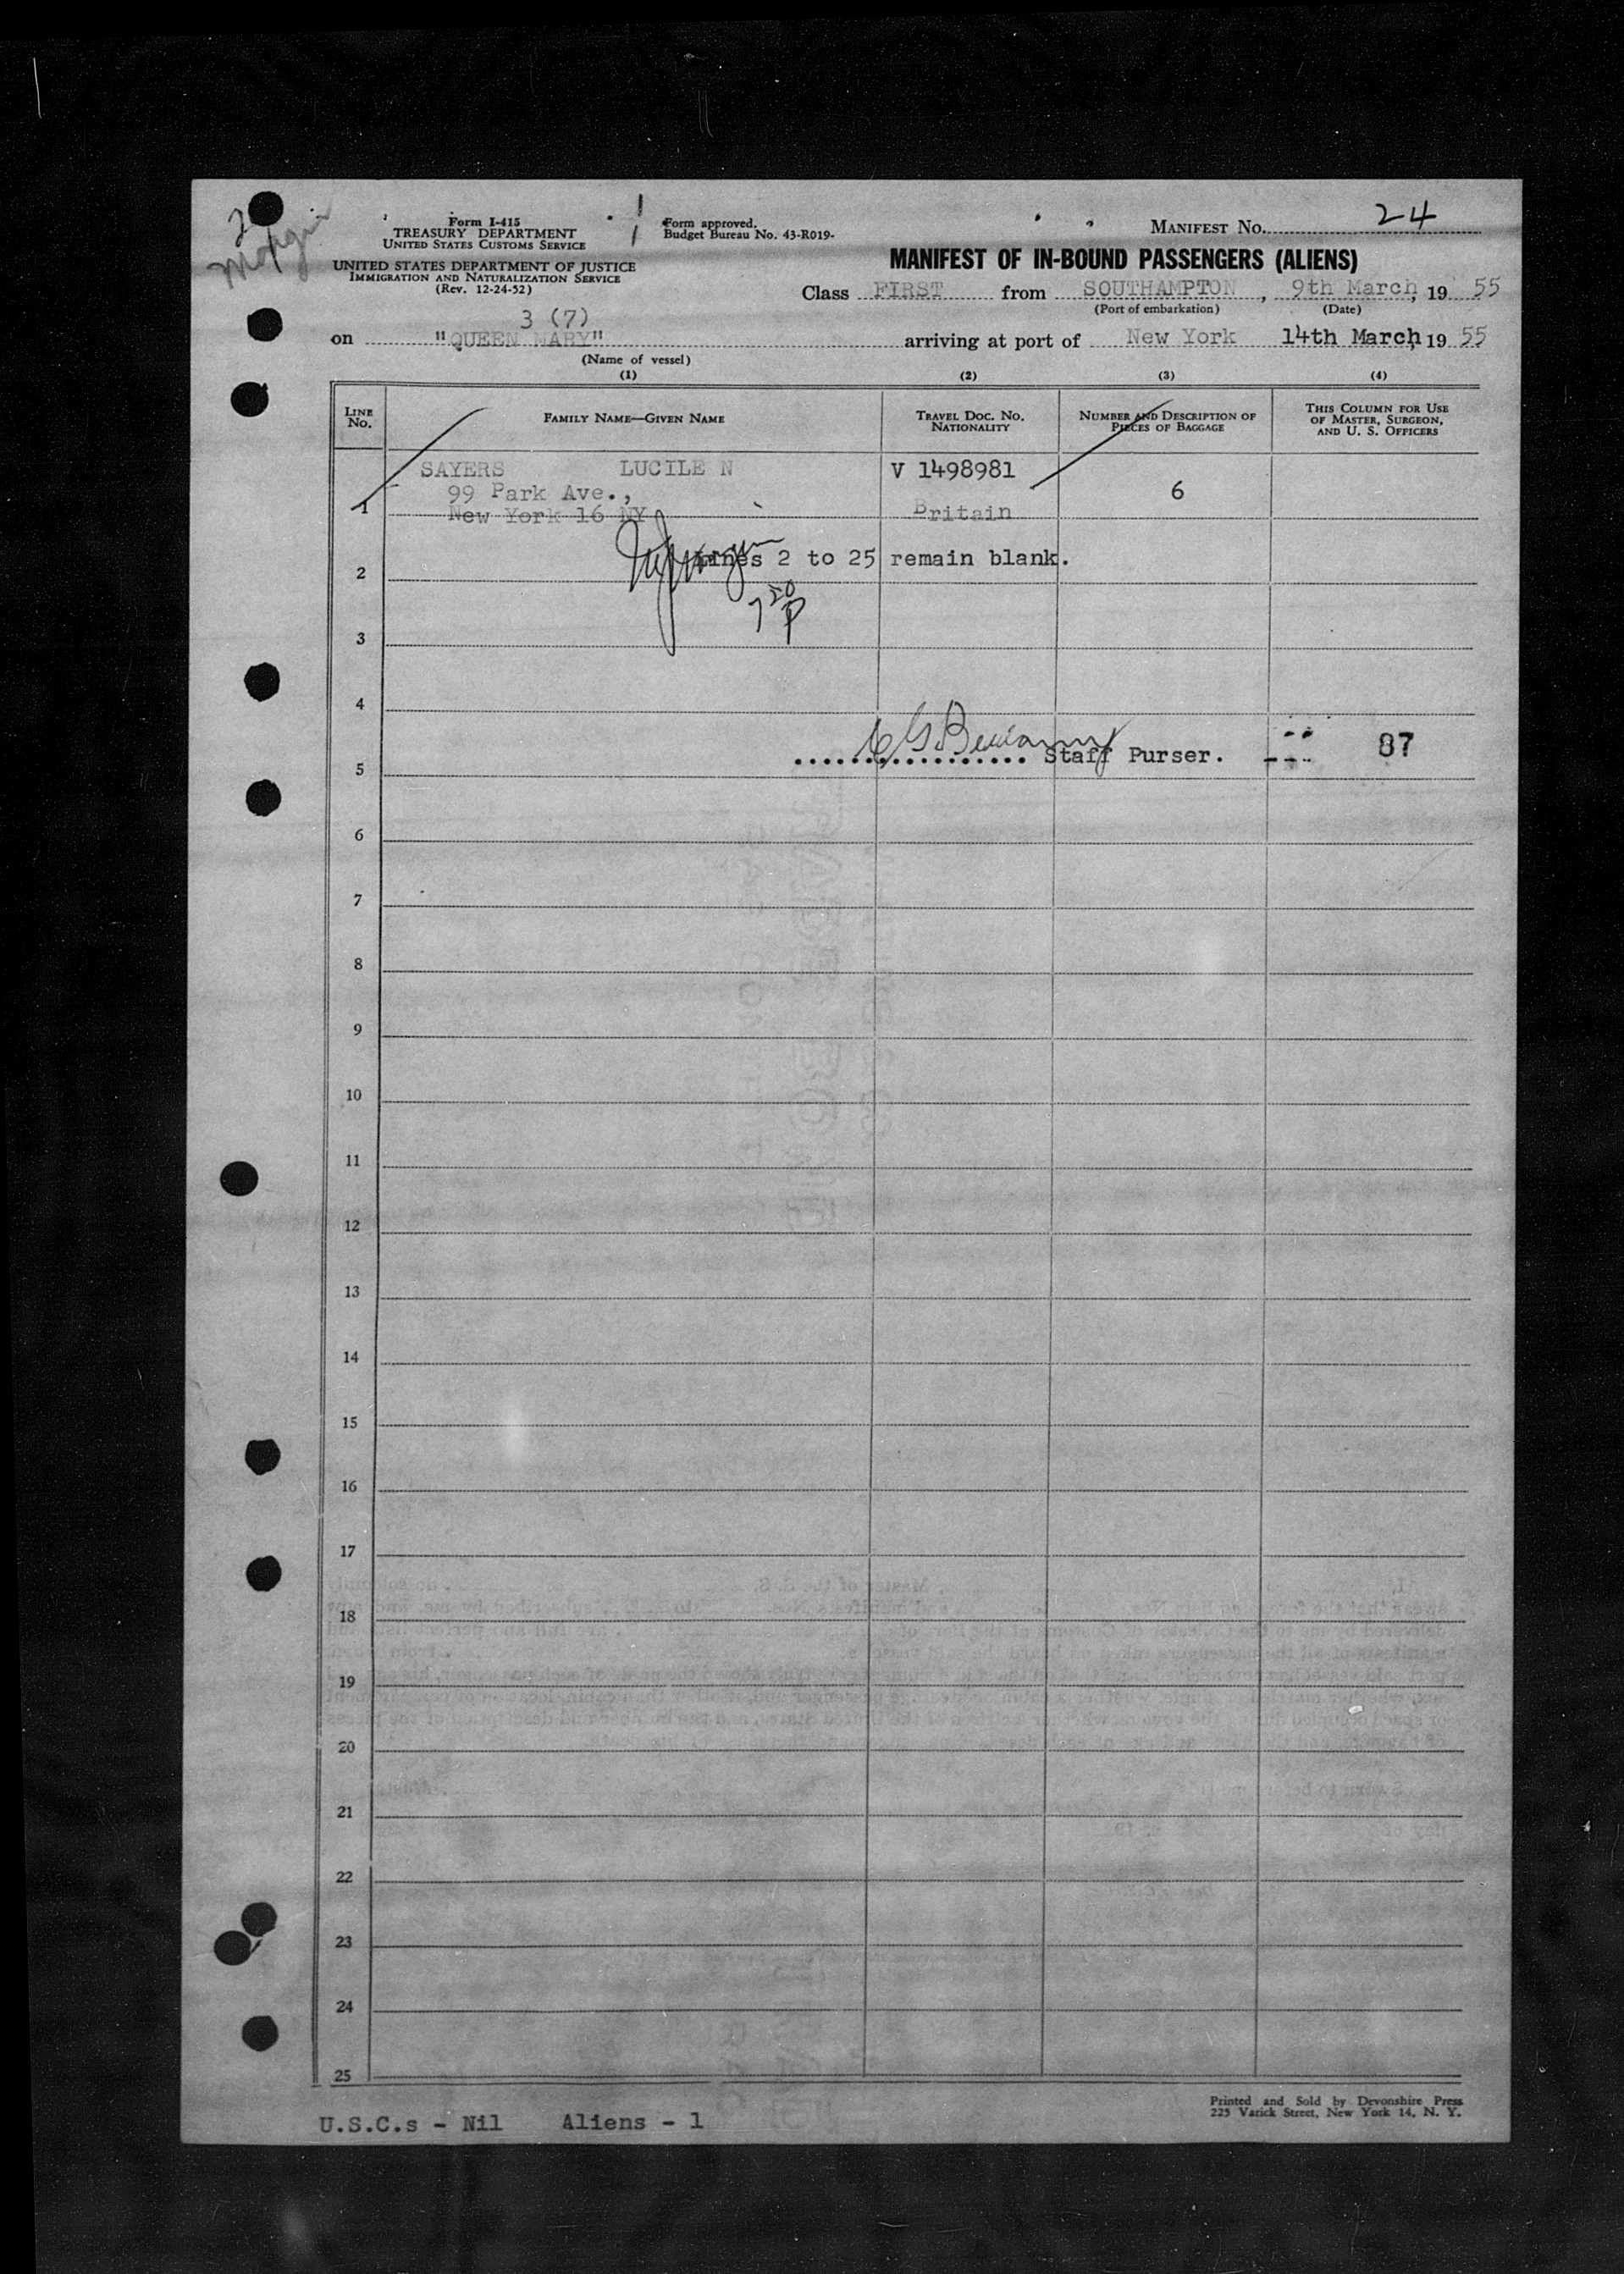 Form I-415
TREASURY DEPARTMENT
UNITED STATES CUSTOMS SERVICE
Form approved.
Budget Bureau No. 43-R019-
MANIFEST NO. 24
UNITED STATES DEPARTMENT OF JUSTICE
IMMIGRATION AND NATURALIZATION SERVICE
(Rev. 12-24-52)
MANIFEST OF IN-BOUND PASSENGERS (ALIENS)
Class FIRST from SOUTHAMPTON, 9th March, 19 55
(Port of embarkation) (Date)
3 (7)
on "QUEEN MARY" arriving at port of New York 14th March, 19 55
(Name of vessel)
(1) (2) (3) (4)
LINE NO. FAMILY NAME—GIVEN NAME TRAVEL DOC. NO. NATIONALITY NUMBER AND DESCRIPTION OF PIECES OF BAGGAGE THIS COLUMN FOR USE OF MASTER, SURGEON, AND U. S. OFFICERS
SAYERS LUCILE N V 1498981
99 Park Ave., 6
1 New York 16 NY Britain
Lines 2 to 25 remain blank.
2
7 50 P
3
4
Staff Purser. 87
5
6
7
8
9
10
11
12
13
14
15
16
17
18
19
20
21
22
23
24
25
Printed and Sold by Devonshire Press
225 Varick Street, New York 14, N. Y.
U.S.C.s - Nil Aliens - 1